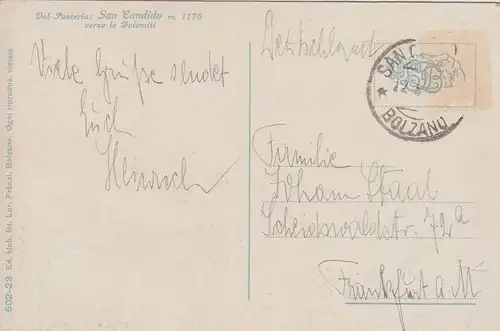 Val Pusteria: San Candido m. 1175
verso le Dolomiti
Viele Grüße sendet
Euch
Heinrich
Deutschland
SAN
BOLZANO
Familie
Johann Staal
Scheidswaldstr. 72a
Frankfurt a. M
502-23 Ed. Stab. fot. Lor. Fränzl, Bolzano. Ogni riproduz. vietata